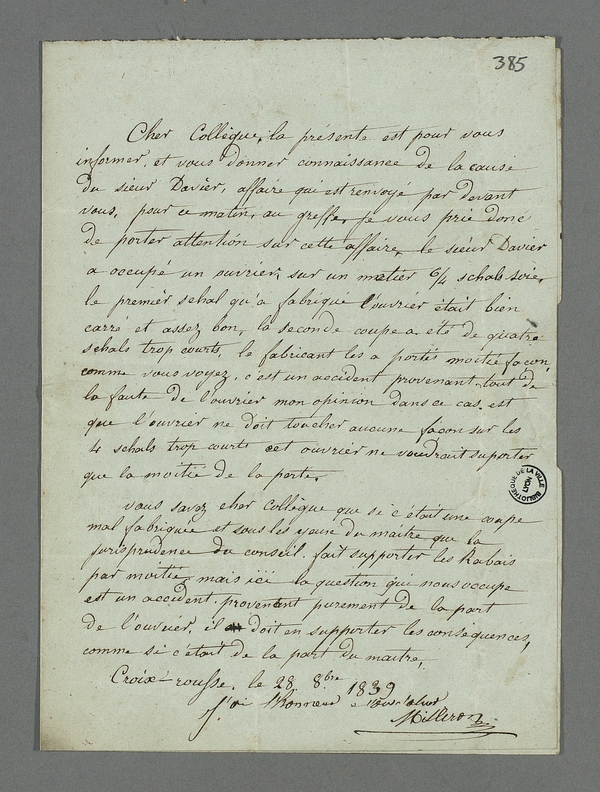 385
Cher Collègue, la présente est pour vous
informer, et vous donner connaissance de la cause
du sieur Davier, affaire qui est renvoyé par devant
vous, pour ce matin, au greffe, je vous prie donc
de porter attention sur cette affaire, le sieur Davier
a occupé un ouvrier, sur un métier 6/4 schals soie,
le premier schal qu'a fabriqué l'ouvrier était bien
carré et assez bon, la seconde coupe a eté de quatre
schals trop courts, le fabricant les a portés moitié façon,
comme vous voyez, c'est un accident provenant tout de
la faute de l'ouvrier mon opinion dans ce cas est
que l'ouvrier ne doit toucher aucune façon sur les
4 schals trop courts cet ouvrier ne voudrait suporter
que la moitié de la perte,
vous savez cher collègue que si c'était une coupe
mal fabriquée et sous les yeux du maitre que la
jurisprudence du conseil, fait supporter les Rabais
par moitié, mais ici la question qui nous occupe
est un accident, provenant purement de la part
de l'ouvrier, il doit en supporter les conséquences,
comme si c'était de la part du maitre,
Croix-rousse, le 28 8bre 1839
J'ai l'honneur de vous saluer
Milleron
BIBLIOTHEQUE DE LA VILLE
LYON